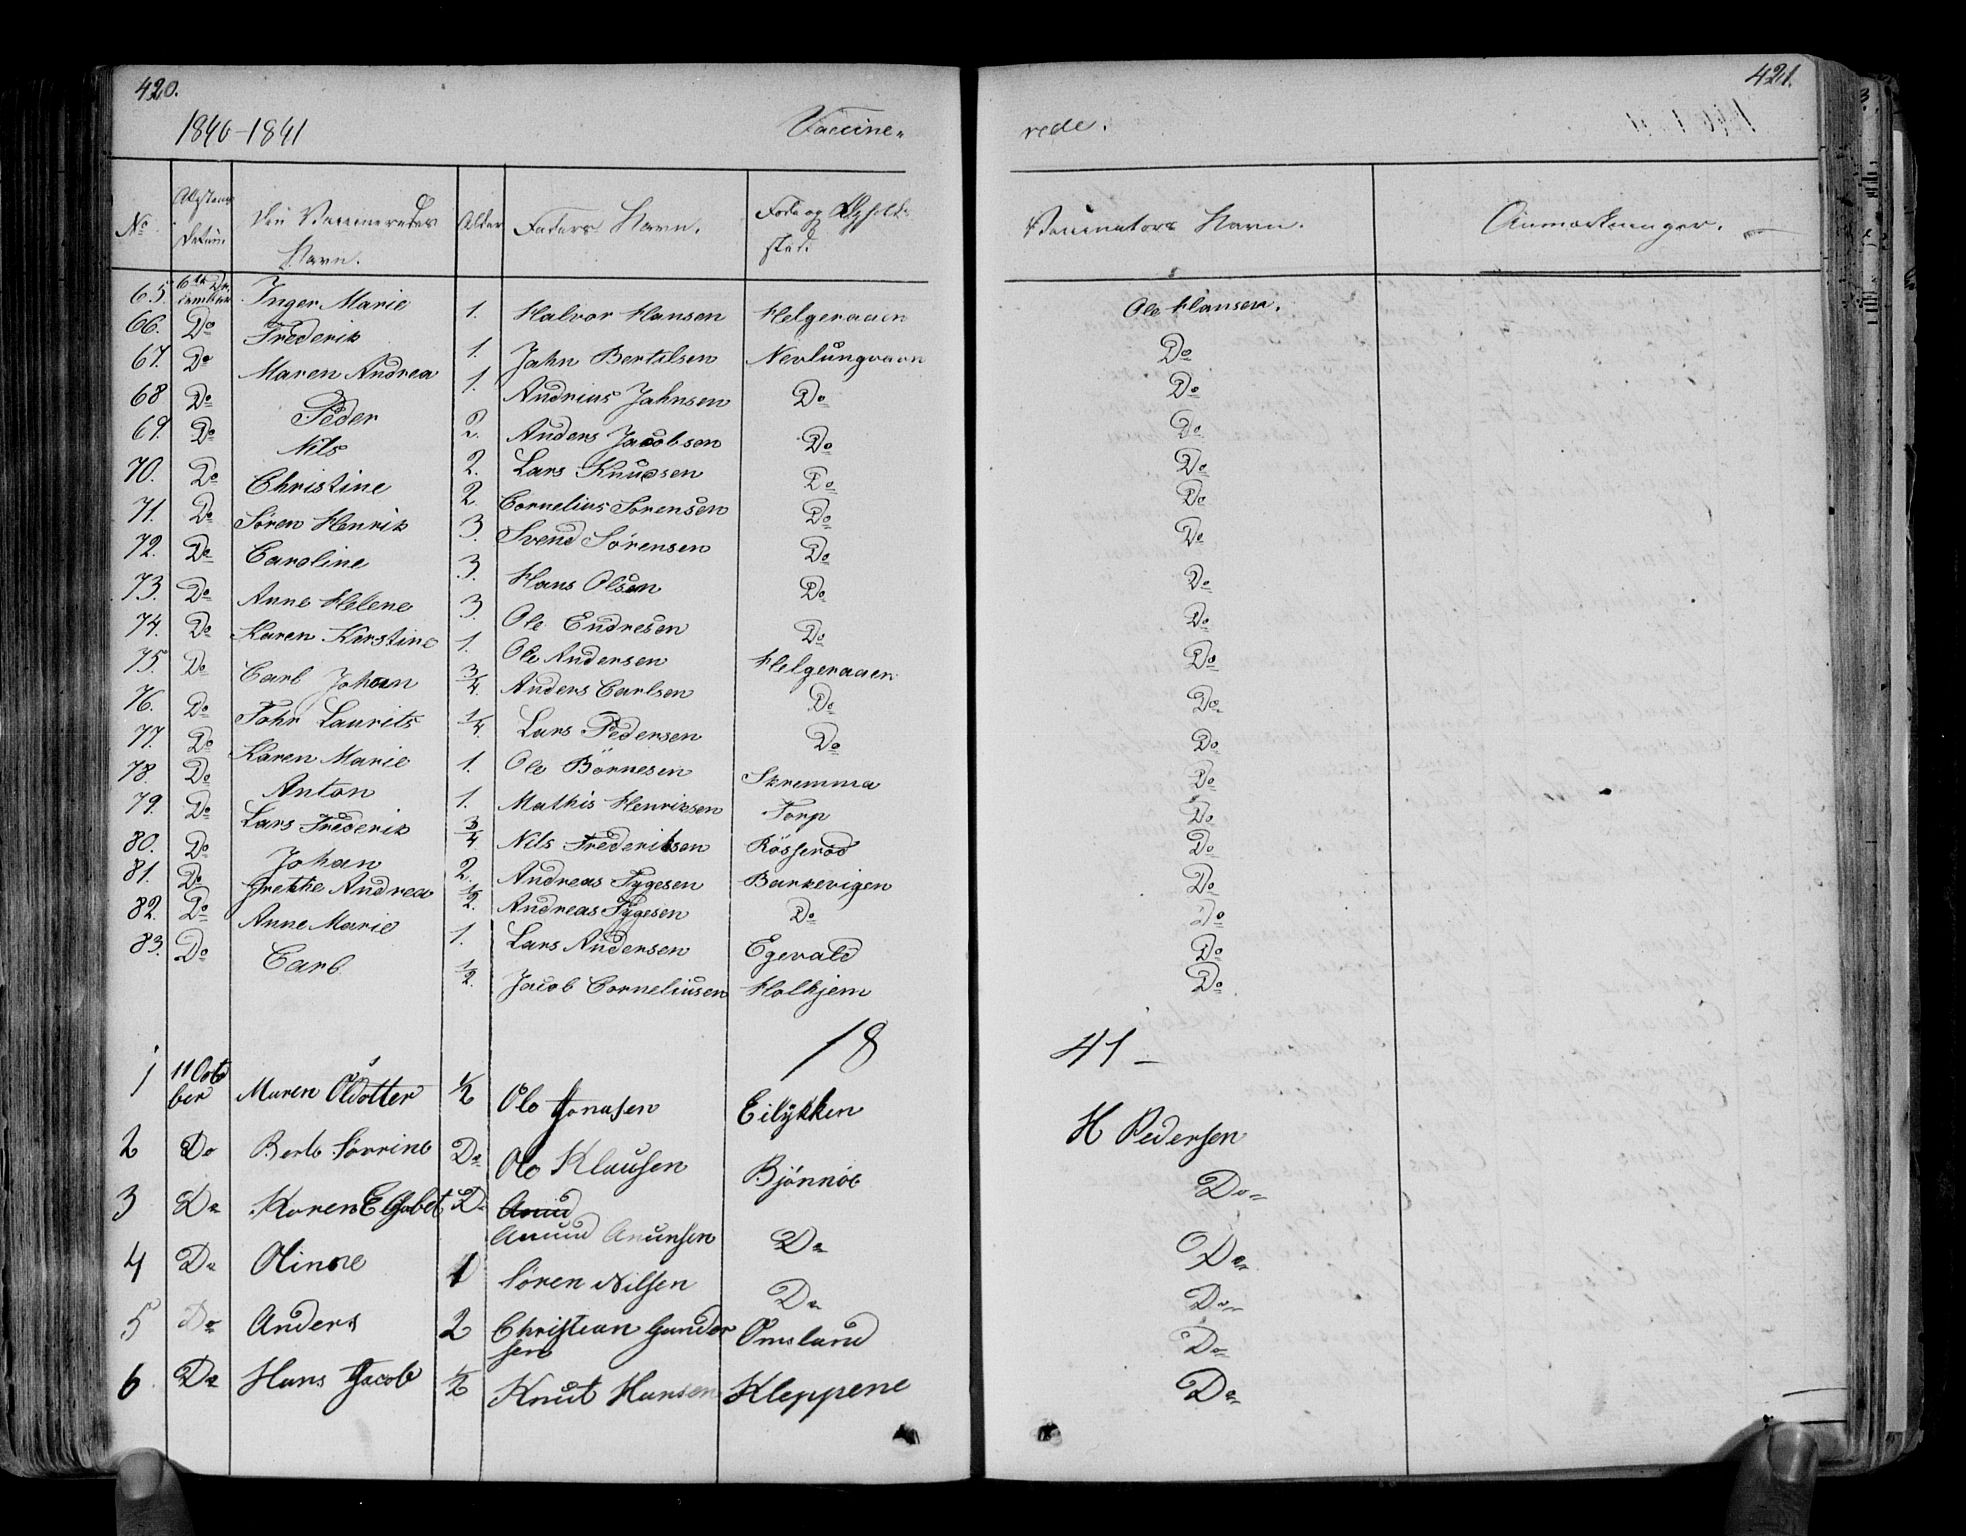 420.
421.
1840-1841
Vaccine-
rede.
No
Attestens Datum
Den Vaccineredes Navn.
Alder
Faders Navn.
Føde og Opholds sted.
Vaccinators Navn.
Anmærkninger.
65. 6te December Inger Marie 1. Halvor Hansen Helgeraaen Ole Hansen.
66. Do Frederik 1. Jahn Bertelsen Nevlunghavn Do
67. Do Maren Andrea 1. Andrius Jahnsen Do Do
68 Do Peder 2. Anders Jacobsen Do Do
69. Do Nils 2. Lars Knudsen Do Do
70. Do Christine 2. Cornelius Sørensen Do Do
71. Do Søren Henrik 3. Svend Sørensen Do Do
72. Do Caroline 3. Hans Olsen Do Do
73. Do Anne Helene 3. Ole Endresen Do Do
74. Do Karen Kirstine 1. Ole Andersen Helgeraaen Do
75. Do Carl Johan 3/4. Anders Carlsen Do Do
76. Do Fohr Laurits 1/4. Lars Pedersen Do Do
77. Do Karen Marie 1. Ole Börnesen Skremma Do
78. Do Anton 1. Mathis Henriksen Torp Do
79. Do Lars Frederik 3/4 Nils Frederiksen Rösserød Do
80. Do Johan 2. Andreas Tygesen Barkevigen Do
81. Do Grethe Andrea 1/2. Andreas Tygesen Do Do
82. Do Anne Marie 1. Lars Andersen Egevald Do
83. Do Carl 1/2. Jacob Corneliusen Holhjem Do
18 41-
1 11 October Maren Olsdotter 1/2 Ole Jonasen Eilykken H Pedersen
2 Do Berte Sørrine Do Ole Klausen Bjønnøe Do
3 Do Karen Elsabet Do Anund Anunsen Do Do
4 Do Olinne 1 Søren Nilsen Do Do
5 Do Anders 2 Christian Gundersen Omsland Do
6 Do Hans Jacob 1/2 Knut Hansen Kleppene Do